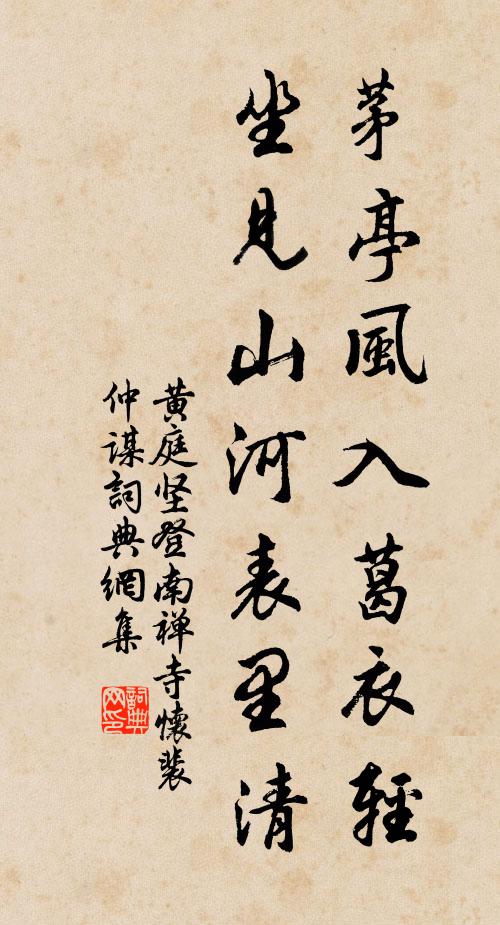 茅亭風入葛衣輕
坐見山河表里清
黄庭坚登南禅寺懷裴
仲謀詞典網集
詞典
网印